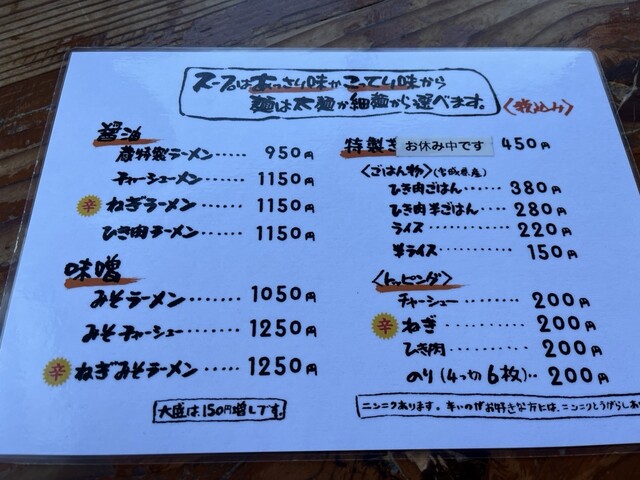 スープはあっさり味かこってり味から
麺は太麺か細麺から選べます。
〈税込み〉
醤油
蔵特製ラーメン‥‥‥ 950円
チャーシューメン‥‥‥ 1150円
辛 ねぎラーメン‥‥‥ 1150円
ひき肉ラーメン‥‥‥ 1150円
味噌
みそラーメン‥‥‥‥ 1050円
みそチャーシュー‥‥‥ 1250円
辛 ねぎみそラーメン‥‥‥ 1250円
大盛は、150円増しです。
特製ぎ お休み中です 450円
〈ごはん物〉(宮城県産)
ひき肉ごはん‥‥‥ 380円
ひき肉半ごはん‥‥ 280円
ライス‥‥‥‥‥ 220円
半ライス‥‥‥‥ 150円
〈トッピング〉
チャーシュー‥‥‥‥ 200円
辛 ねぎ‥‥‥‥‥ 200円
ひき肉‥‥‥‥‥ 200円
のり(4つ切6枚)‥ 200円
ニンニクあります。辛いのがお好きな方には、ニンニクとうがらしあ